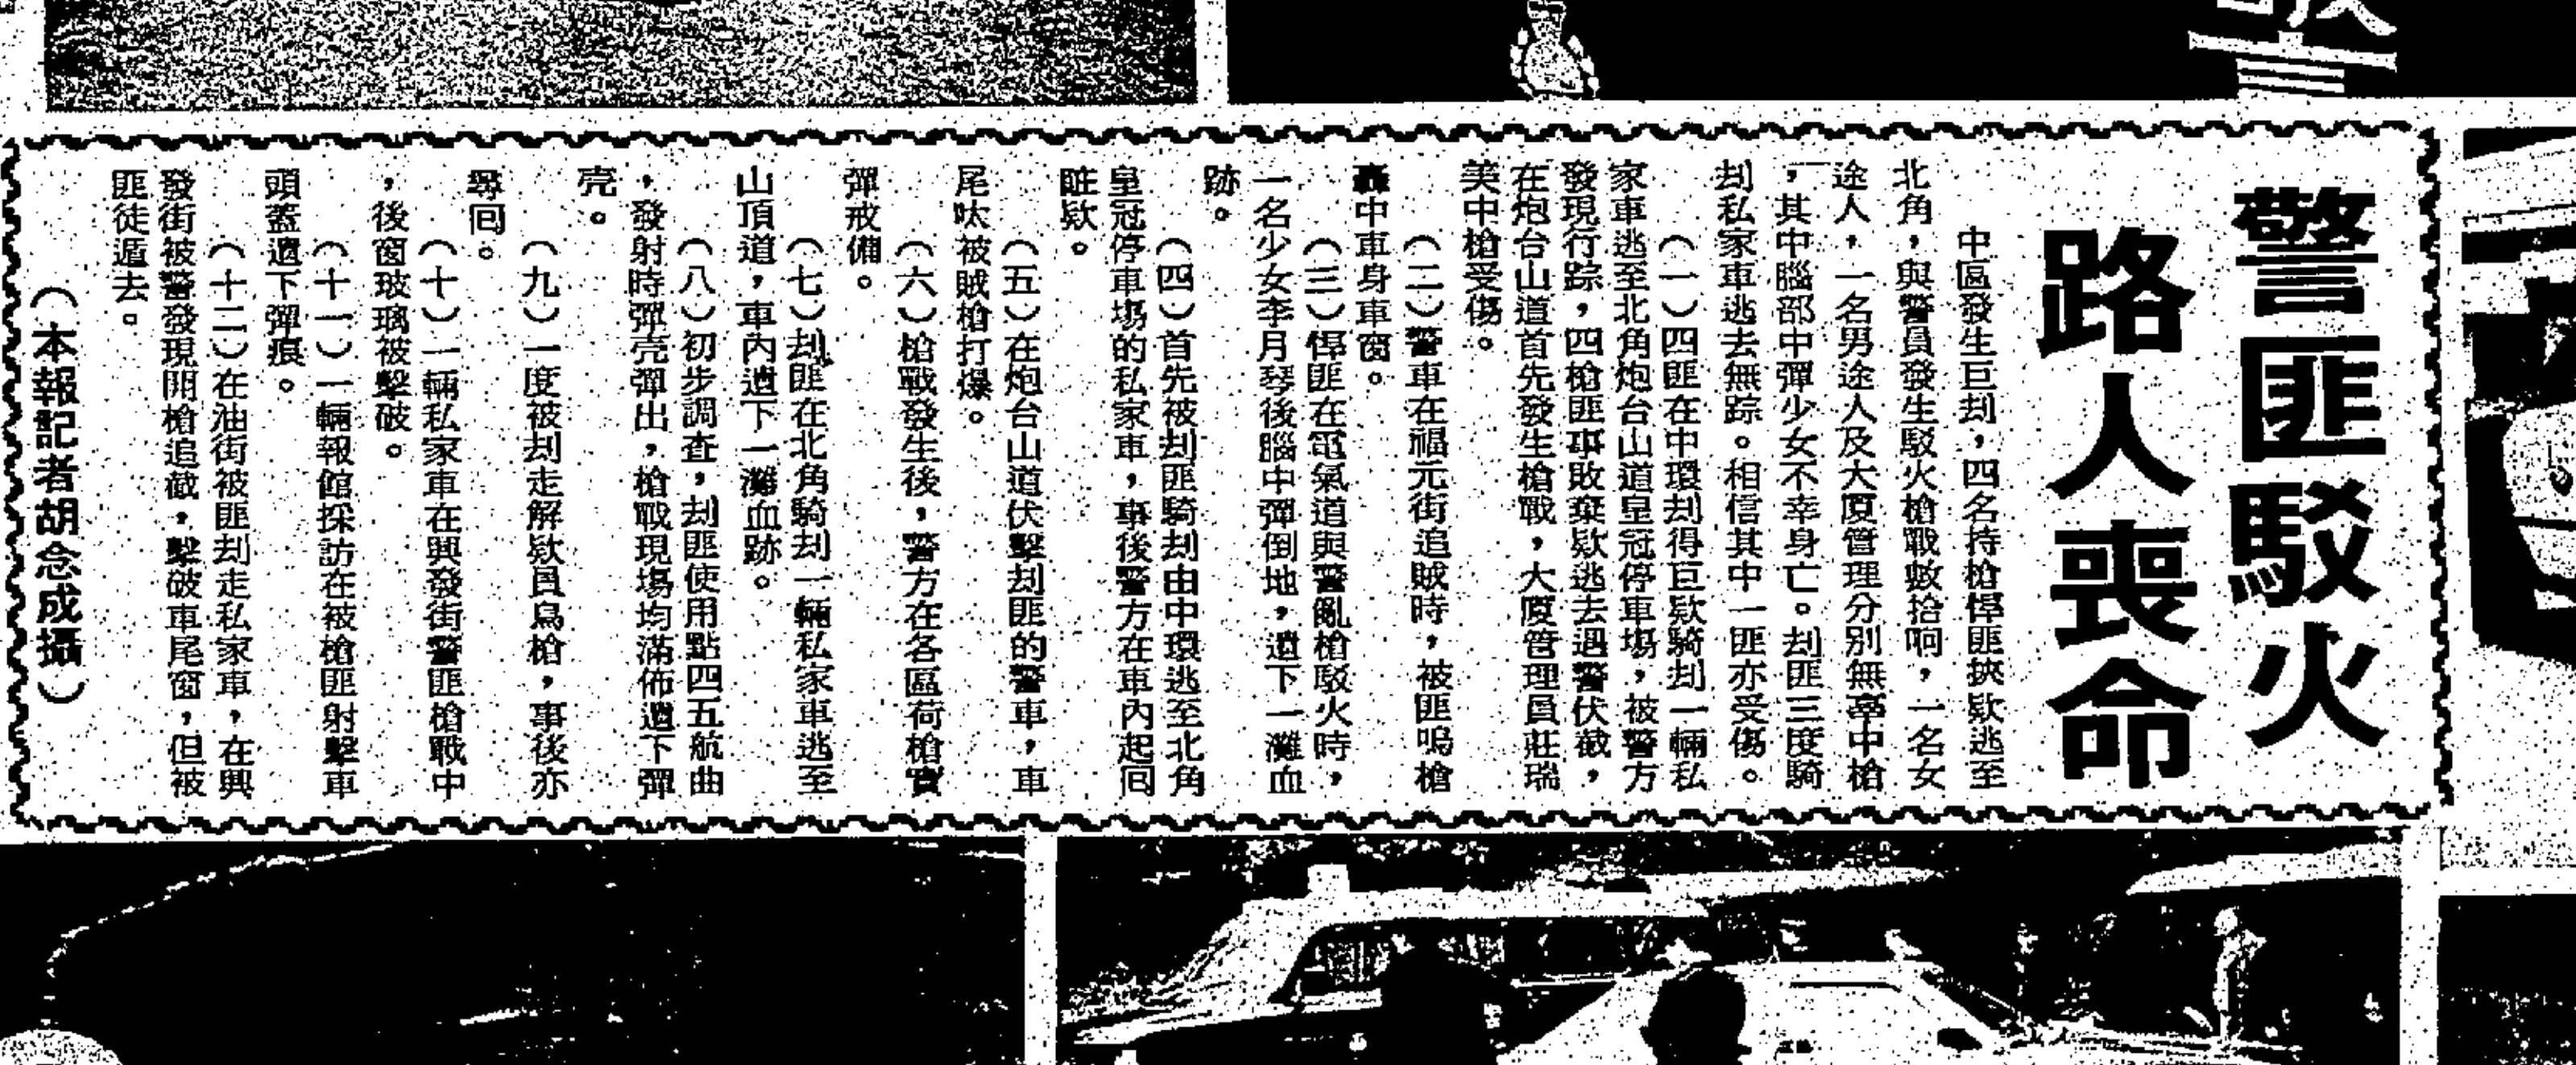 警匪駁火
路人喪命
中區發生巨刦，四名持槍悍匪挾欵逃至
北角，與警員發生駁火槍戰數拾响，一名女
途人，一名男途人及大厦管理分別無辜中槍
，其中腦部中彈少女不幸身亡。刦匪三度騎
刦私家車逃去無踪。相信其中一匪亦受傷。
（一）四匪在中環刦得巨欵騎刦一輛私
家車逃至北角炮台山道皇冠停車塲，被警方
發現行踪，四槍匪事敗棄欵逃去遇警伏截，
在炮台山道首先發生槍戰，大廈管理員莊瑞
美中槍受傷。
（二）警車在福元街追賊時，被匪鳴槍
轟中車身車窗。
（三）悍匪在電氣道與警亂槍駁火時，
一名少女李月琴後腦中彈倒地，遺下一灘血
跡。
（四）首先被刦匪騎刦由中環逃至北角
皇冠停車塲的私家車，事後警方在車內起囘
賍欵。
（五）在炮台山道伏擊刦匪的警車，車
尾呔被賊槍打爆。
（六）槍戰發生後，警方在各區荷槍實
彈戒備。
（七）刦匪在北角騎刦一輛私家車逃至
山頂道，車內遺下一灘血跡。
（八）初步調查，刦匪使用點四五航曲
，發射時彈壳彈出，槍戰現塲均滿佈遺下彈
壳。
（九）一度被刦走解欵員鳥槍，事後亦
尋囘。
（十）一輛私家車在興發街警匪槍戰中
，後窗玻璃被擊破。
（十一）一輛報館採訪在被槍匪射擊車
頭蓋遺下彈痕。
（十二）在油街被匪刦走私家車，在興
發街被警發現開槍追截，擊破車尾窗，但被
匪徒遁去。
（本報記者胡念成攝）